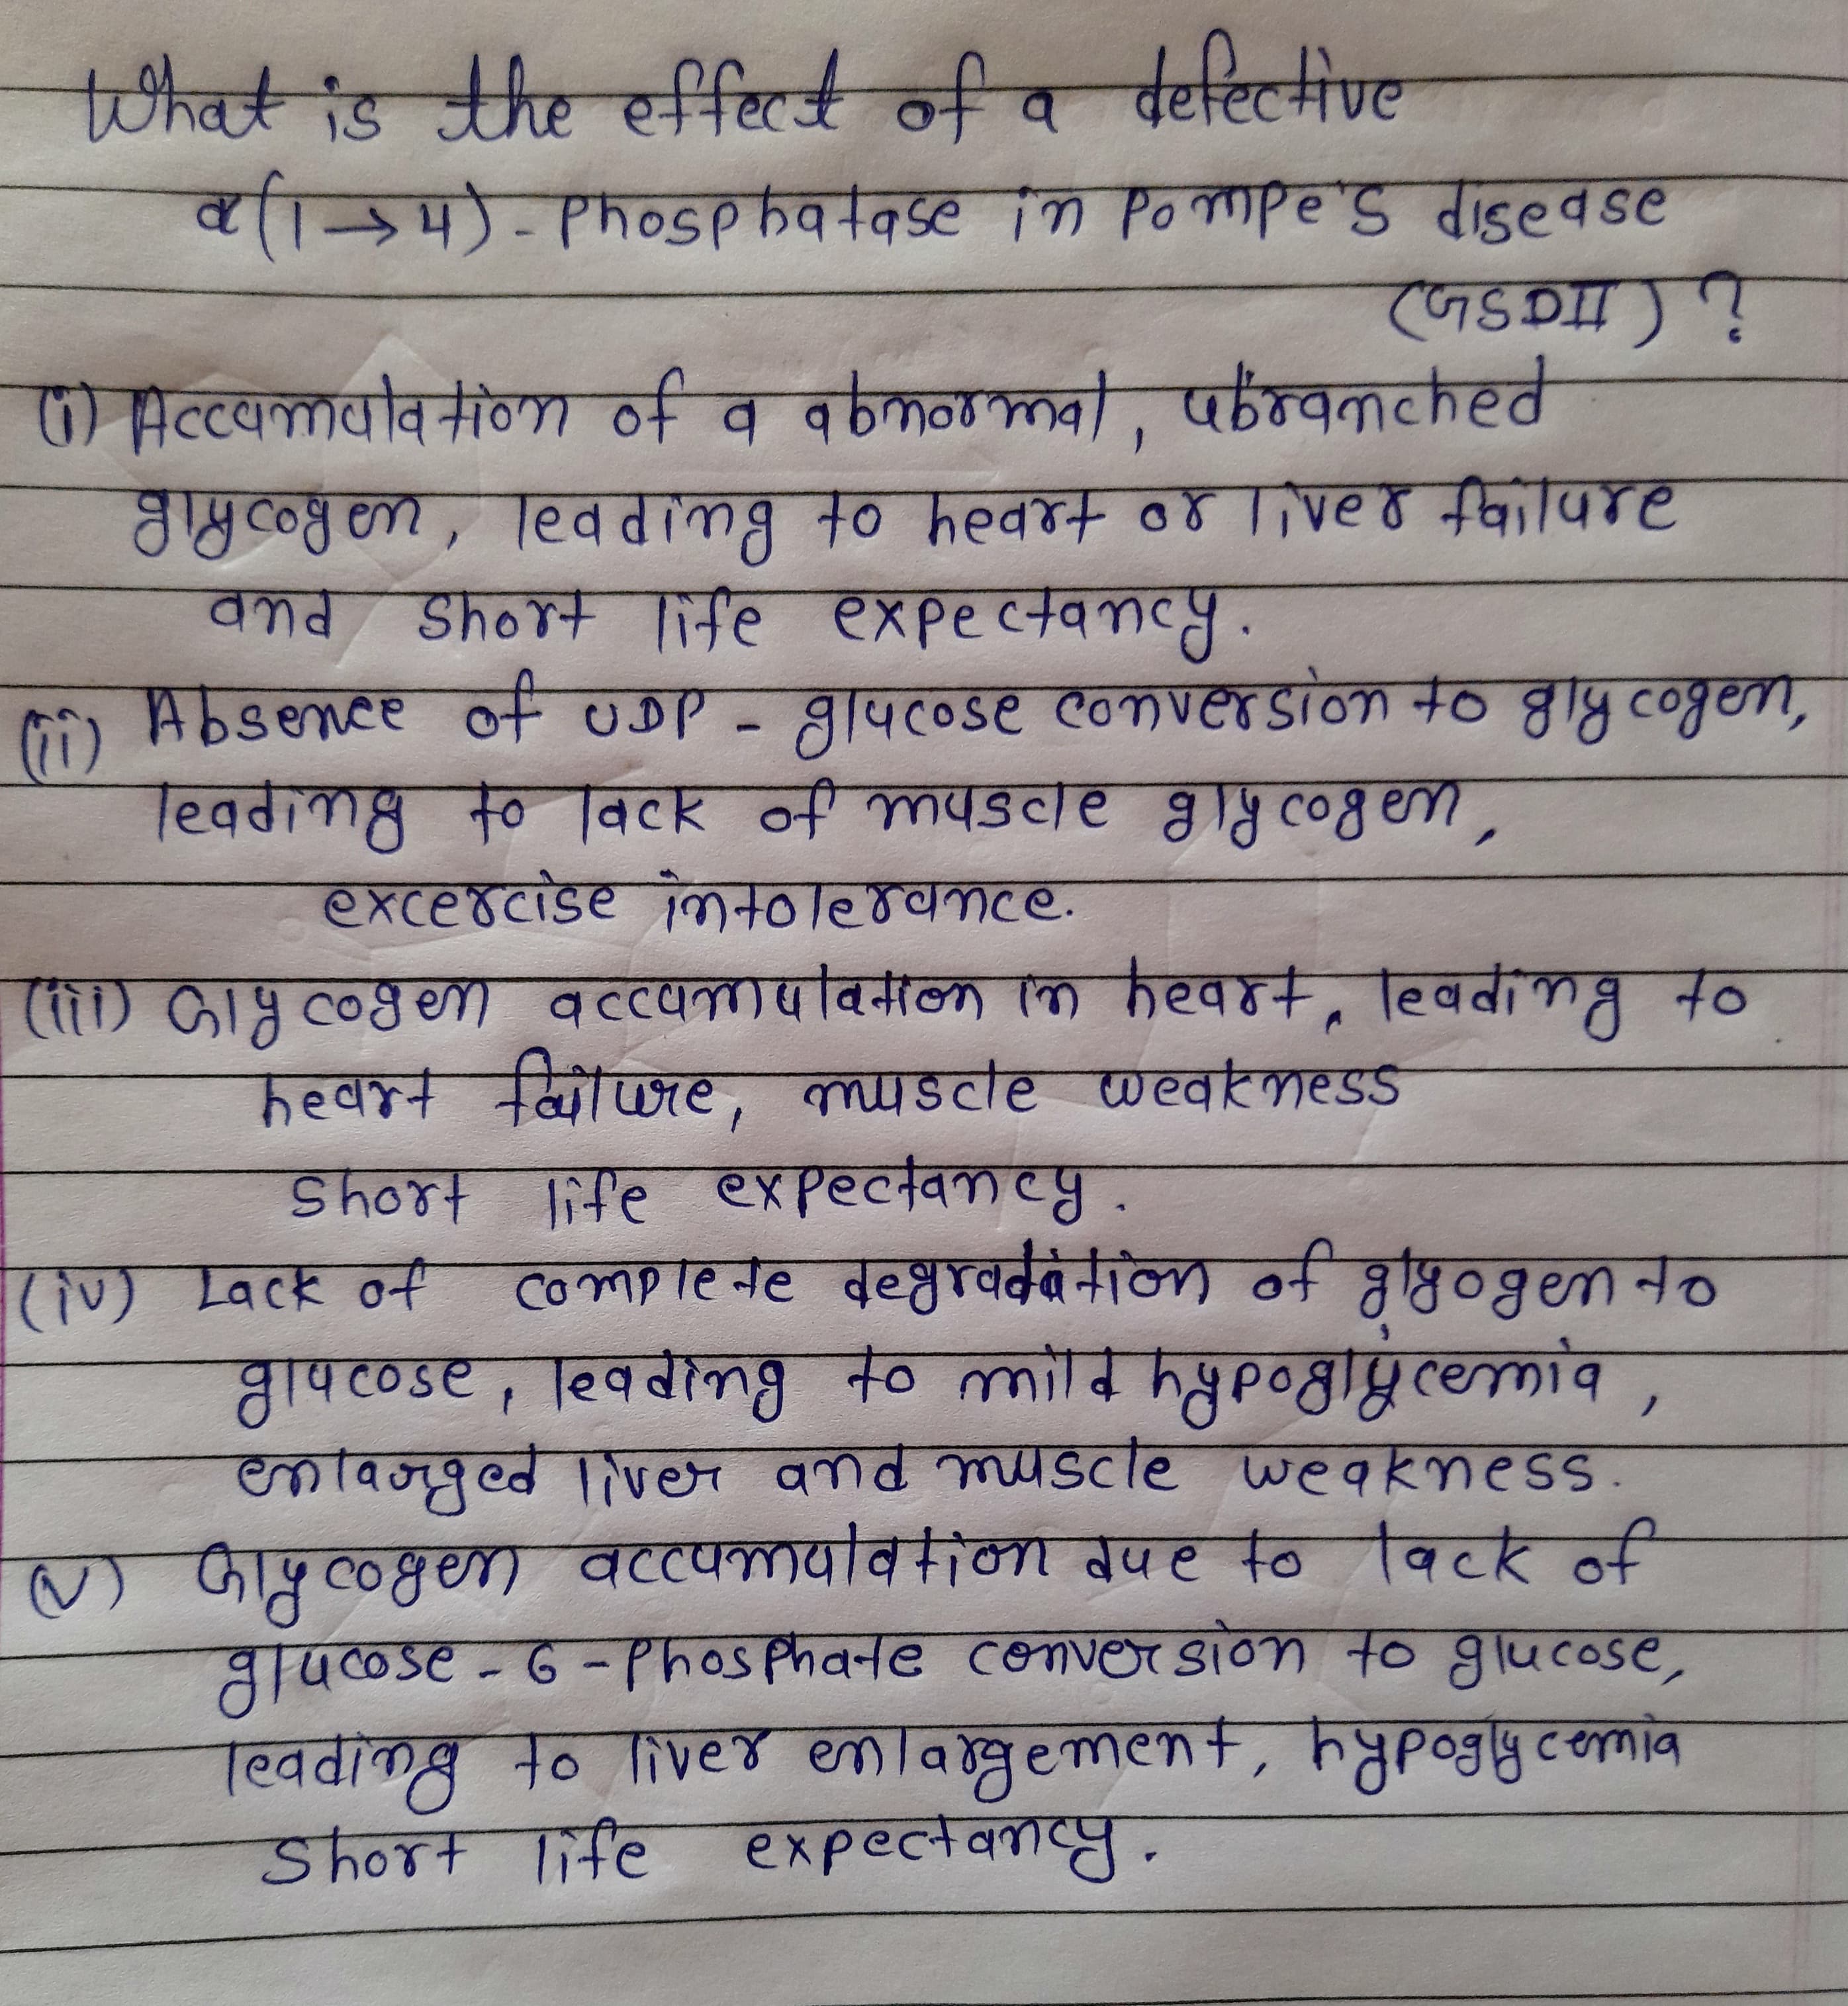 What is the effect of a defective
α(1→4)-Phosphatase in Pompe's disease
(GSDII) ?
(i) Accumulation of a abnormal, ubranched
glycogen, leading to heart or liver failure
and short life expectancy.
(ii) Absence of UDP - glucose conversion to glycogen,
leading to lack of muscle glycogen,
excercise intolerance.
(iii) Glycogen accumulation in heart, leading to
heart failure, muscle weakness
short life expectancy.
(iv) Lack of complete degradation of glyogen to
glucose, leading to mild hypoglycemia,
enlarged liver and muscle weakness.
(v) Glycogen accumulation due to lack of
glucose-6-phosphate conversion to glucose,
leading to liver enlargement, hypoglycemia
short life expectancy.